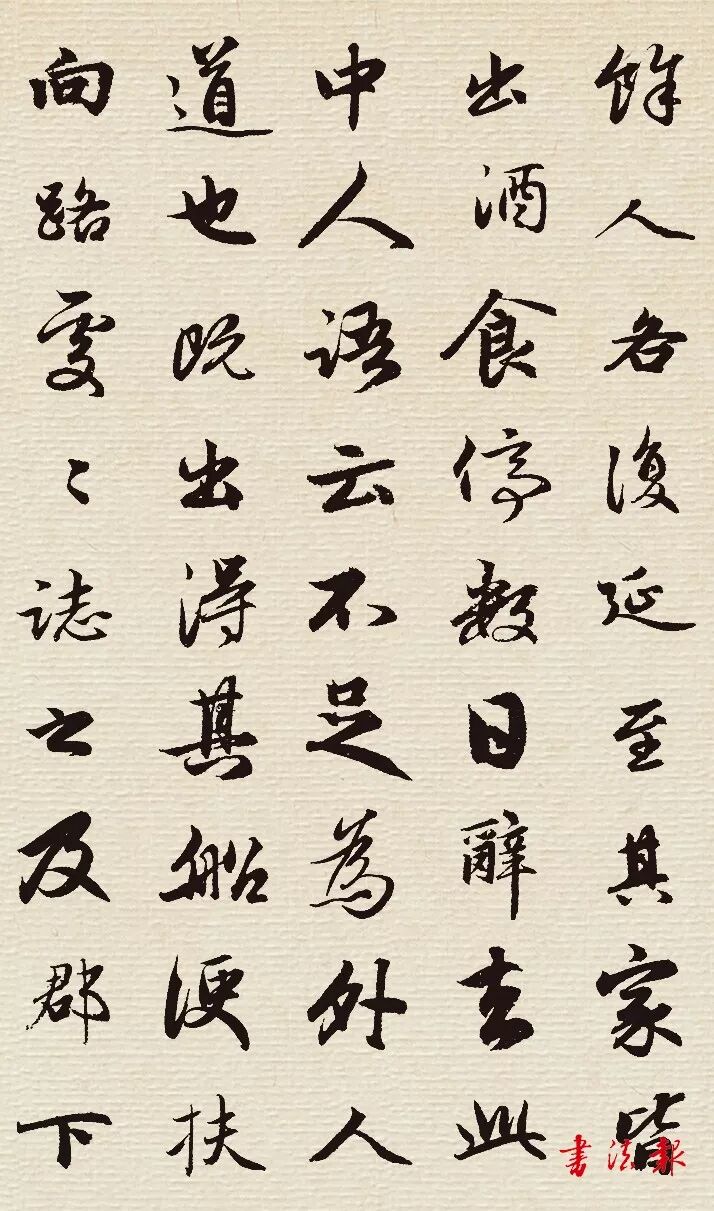 餘人各復延至其家皆
出酒食停數日辭去此
中人語云不足為外人
道也既出得其船便扶
向路處〻誌之及郡下
书法報